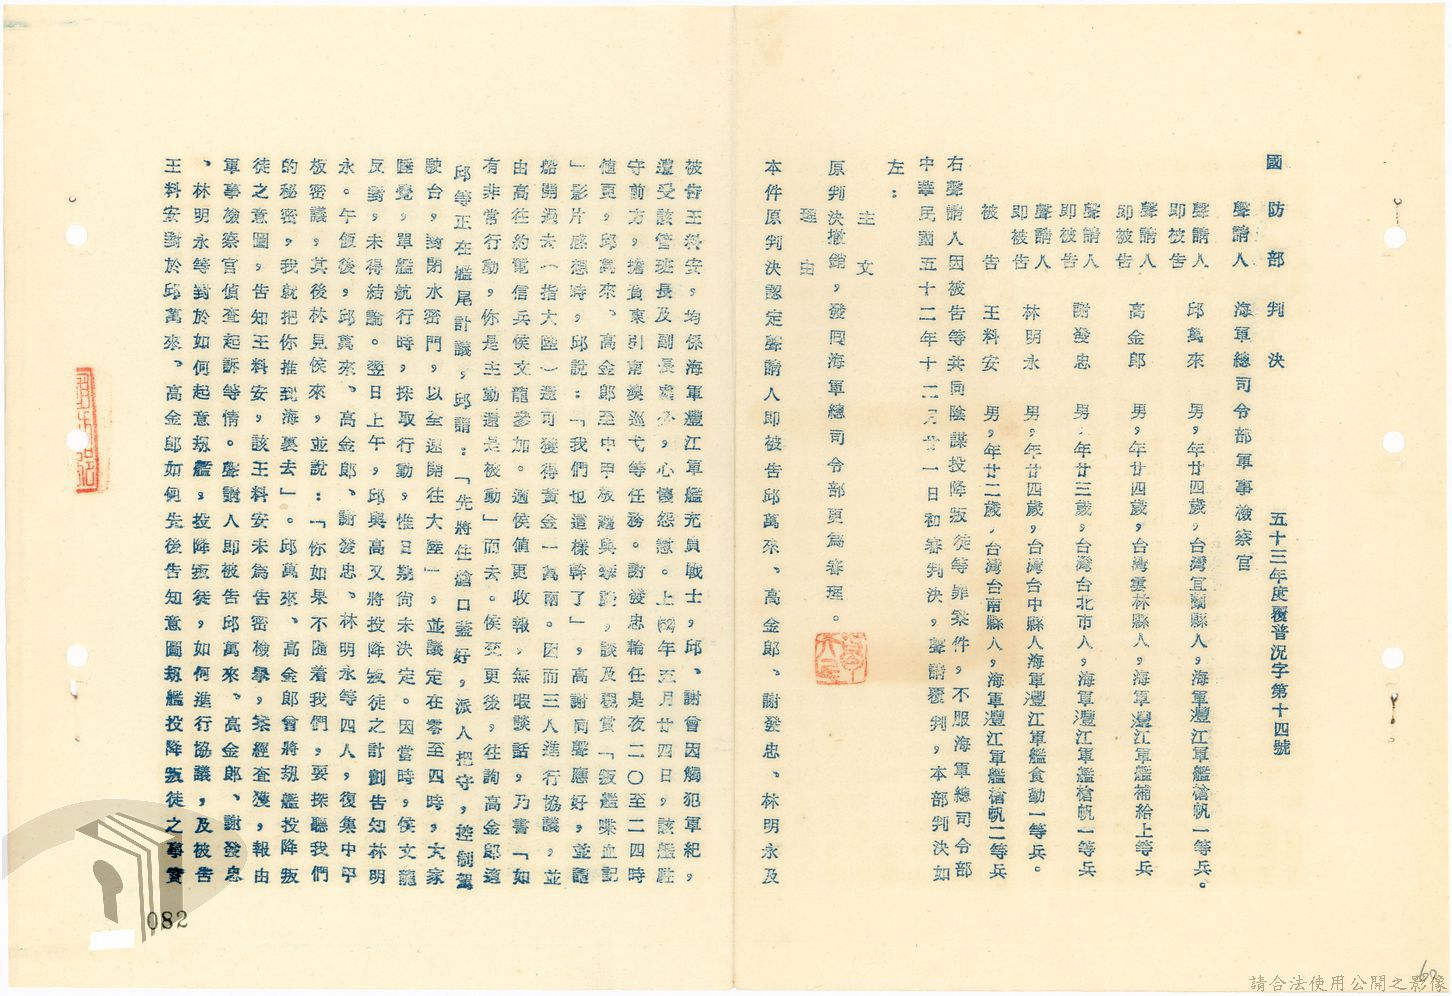 國防部判決 五十三年度覆普況字第十四號
聲請人 海軍總司令部軍事檢察官
聲請人即被告 邱萬來 男，年廿四歲，台灣宜蘭縣人，海軍灃江軍艦槍帆一等兵。
聲請人即被告 高金郎 男，年廿四歲，台灣雲林縣人，海軍灃江軍艦補給上等兵
聲請人即被告 謝發忠 男，年廿三歲，台灣台北市人，海軍灃江軍艦槍帆一等兵
聲請人即被告 林明永 男，年廿四歲，台灣台中縣人海軍灃江軍艦食勤一等兵。
被告 王料安 男，年廿二歲，台灣台南縣人，海軍灃江軍艦槍帆二等兵
右聲請人因被告等共同陰謀投降叛徒等罪案件，不服海軍總司令部
中華民國五十二年十二月廿一日初審判決，聲請覆判，本部判決如
左：
主文
原判決撤銷，發回海軍總司令部更為審理。
理由
本件原判決認定聲請人即被告邱萬來、高金郎、謝發忠、林明永及
被告王料安，均係海軍灃江軍艦充員戰士，邱、謝曾因觸犯軍紀，
遭受該管班長及副長處分，心懷怨懟。上(52)年五月廿四日，該艦駐
守前方，擔負東引南澳巡弋等任務。謝發忠輪任是夜二〇至二四時
值更，邱萬來、高金郎至中甲板趨與零談，談及觀賞「叛艦喋血記
」影片感想時，邱說：「我們也這樣幹了」，高謝同聲應好，並謂
船開過去（指大陸）還可獲得黃金一萬兩。因而三人進行協議，並
由高往約電信兵侯文龍參加。適侯值更收報，無暇談話，乃書「如
有非常行動，你是主動還是被動」而去。侯交更後，往詢高金郎適
邱等正在艦尾計議，邱謂：「先將住艙口蓋好，派人把守，控制駕
駛台，封閉水密門，以全速開往大陸」，並議定在零至四時，大家
睡覺，單艦航行時，採取行動，惟日期尚未決定。因當時，侯文龍
反對，未得結論。翌日上午，邱與高又將投降叛徒之計劃告知林明
永。午飯後，邱萬來、高金郎、謝發忠、林明永等四人，復集中甲
板密議，其後林見侯來，並說：「你如果不隨着我們，要探聽我們
的秘密，我就把你推到海裏去」。邱萬來、高金郎曾將劫艦投降叛
徒之意圖，告知王料安，該王料安未為告密檢舉，案經查獲，報由
軍事檢察官偵查起訴等情。聲請人即被告邱萬來、高金郎、謝發忠
、林明永等對於如何起意劫艦，投降叛徒，如何進行協議，及被告
王料安對於邱萬來、高金郎如何先後告知意圖劫艦投降叛徒之事實
082
請合法使用公開之影像